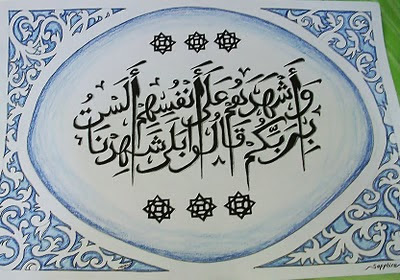 وَأَشْهَدَهُمْ عَلَى أَنفُسِهِمْ أَلَسْتُ
بِرَبِّكُمْ قَالُوا بَلَى شَهِدْنَا